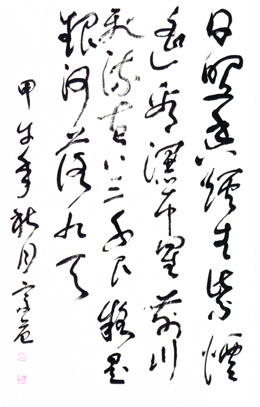 日照香爐生紫煙
遙看瀑布挂前川
飛流直下三千尺疑是
銀河落九天
甲午年秋月